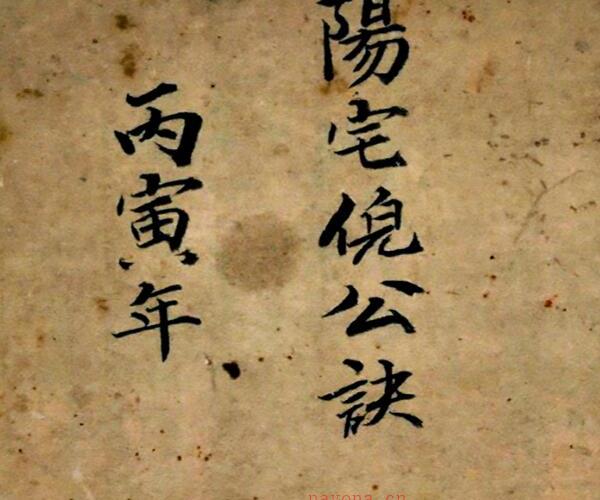 陽宅倪公訣
丙寅年
nayona.cn